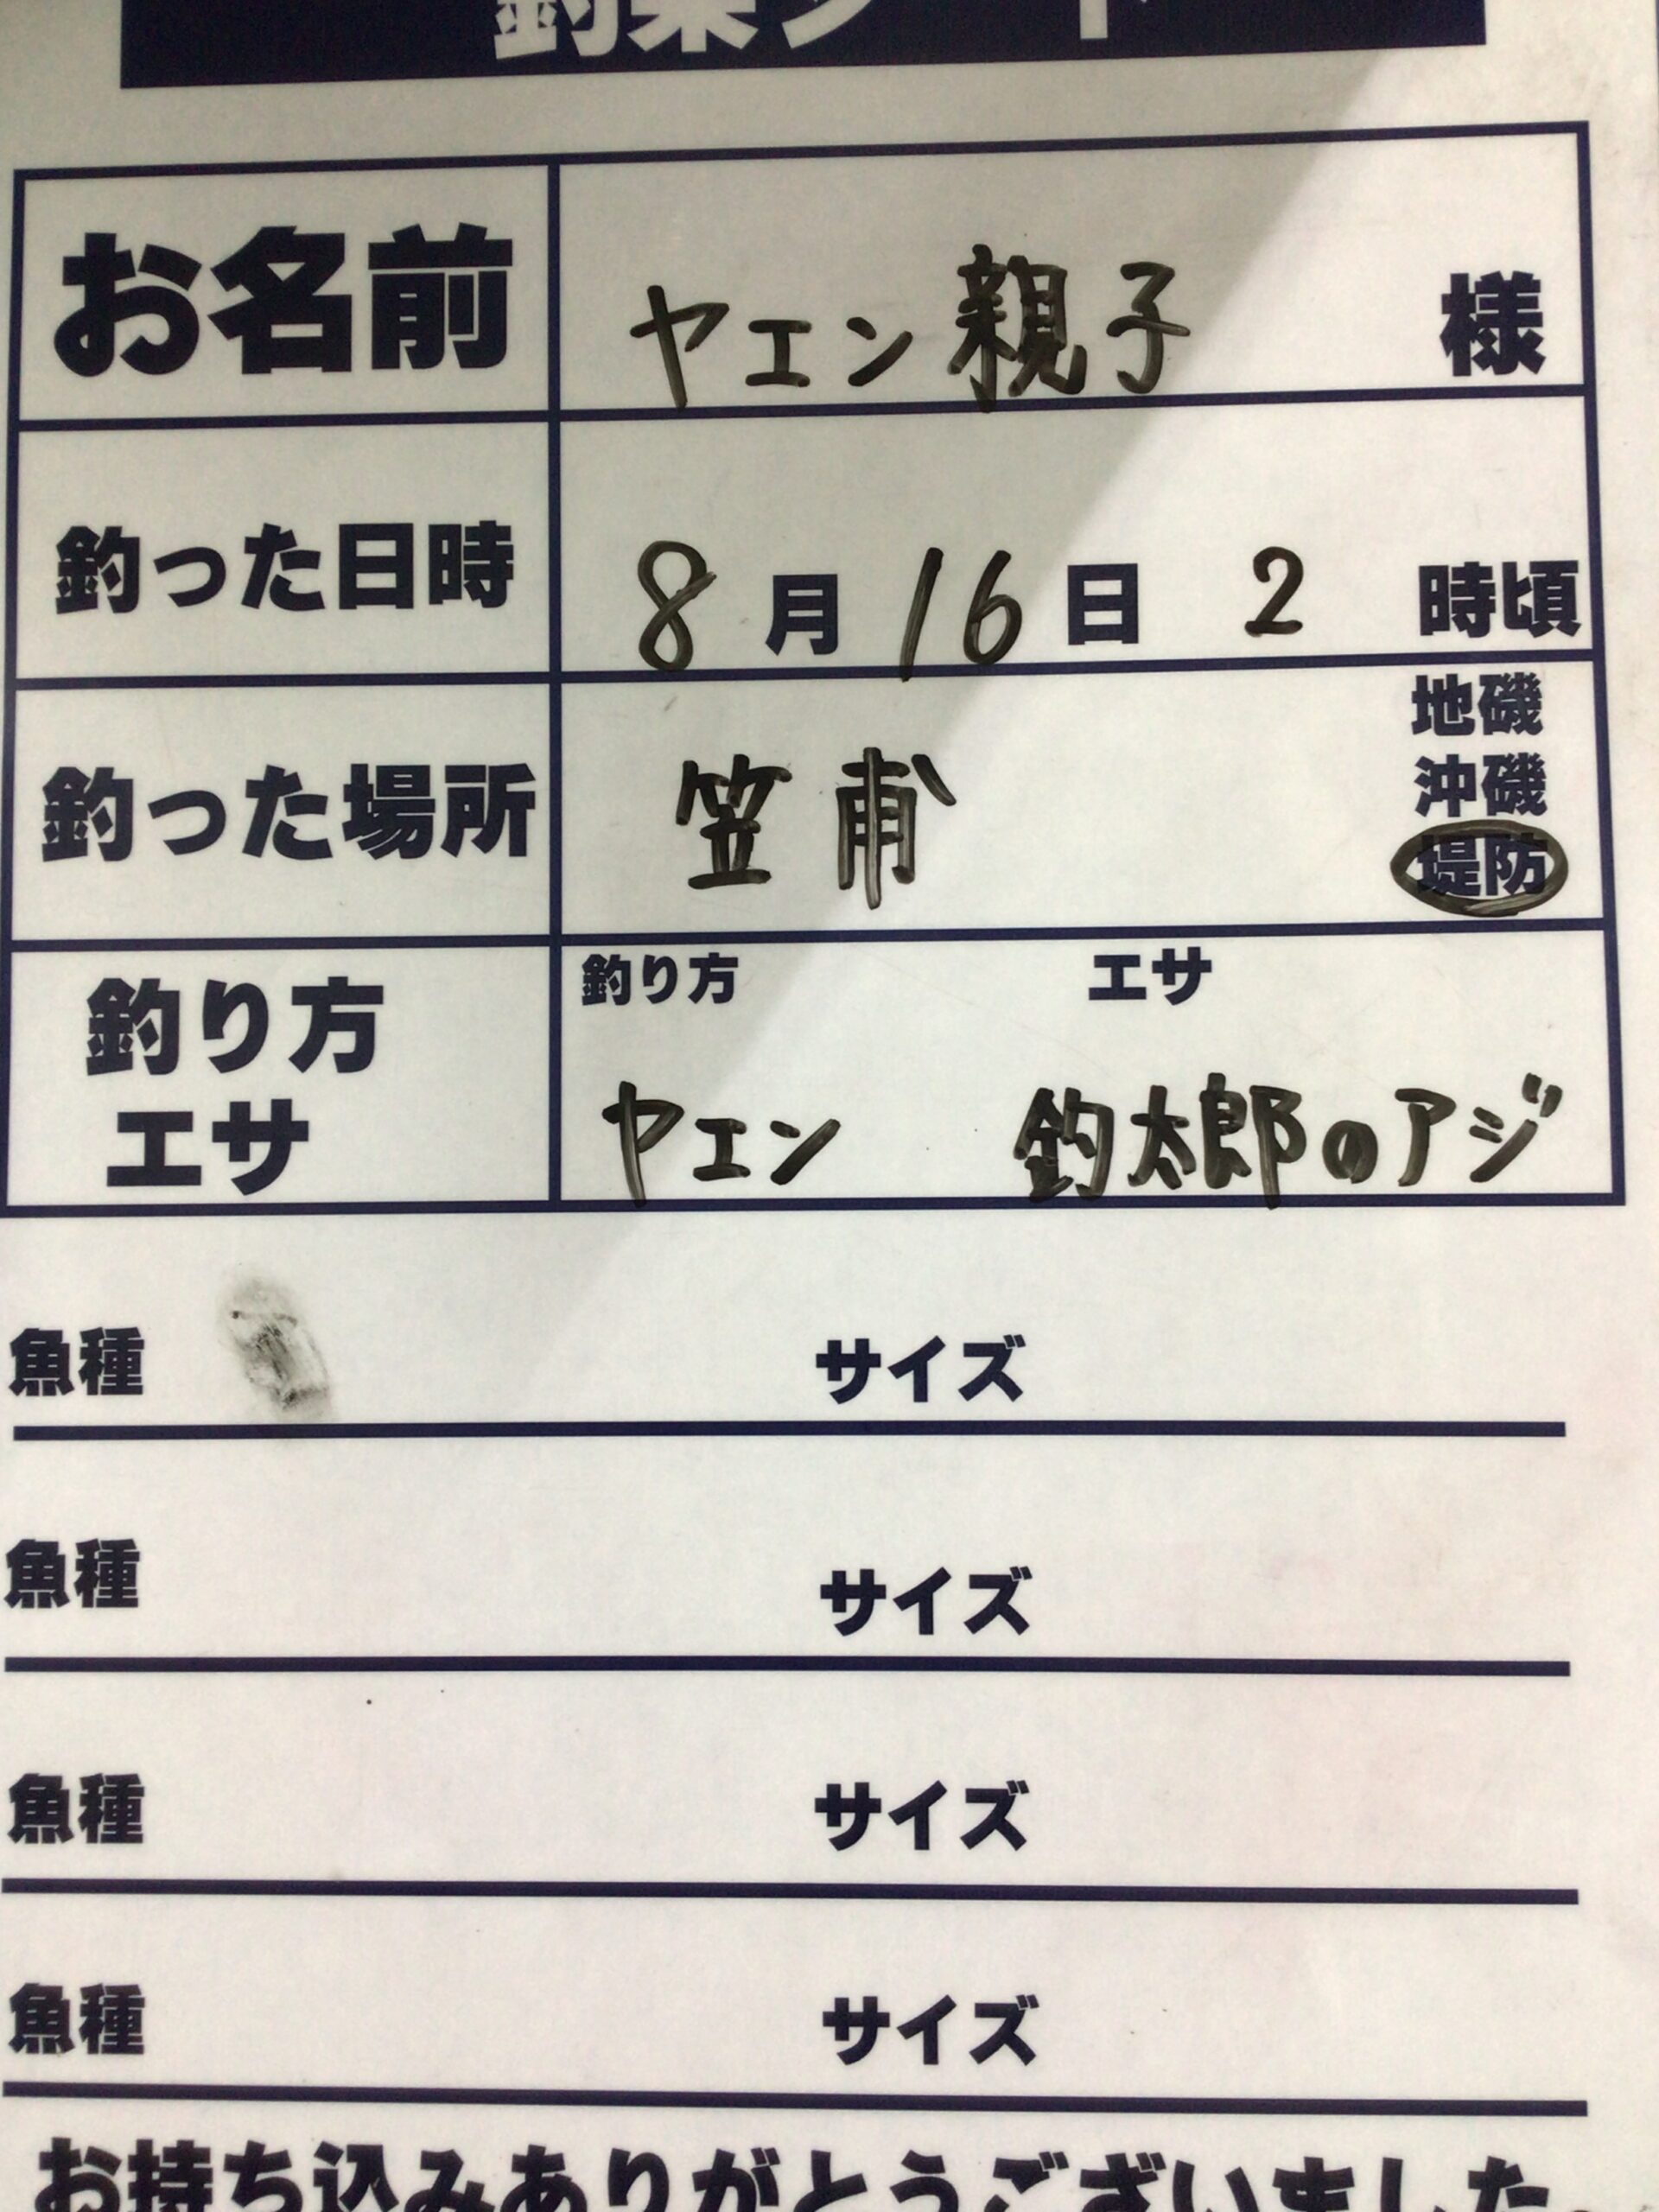 釣果シート
お名前 ヤエン親子 様
釣った日時 8月16日 2時頃
釣った場所 笠甫 地磯
沖磯
堤防
釣り方 エサ 釣り方 エサ
ヤエン 釣太郎のアジ
魚種 サイズ
魚種 サイズ
魚種 サイズ
魚種 サイズ
お持ち込みありがとうございました。